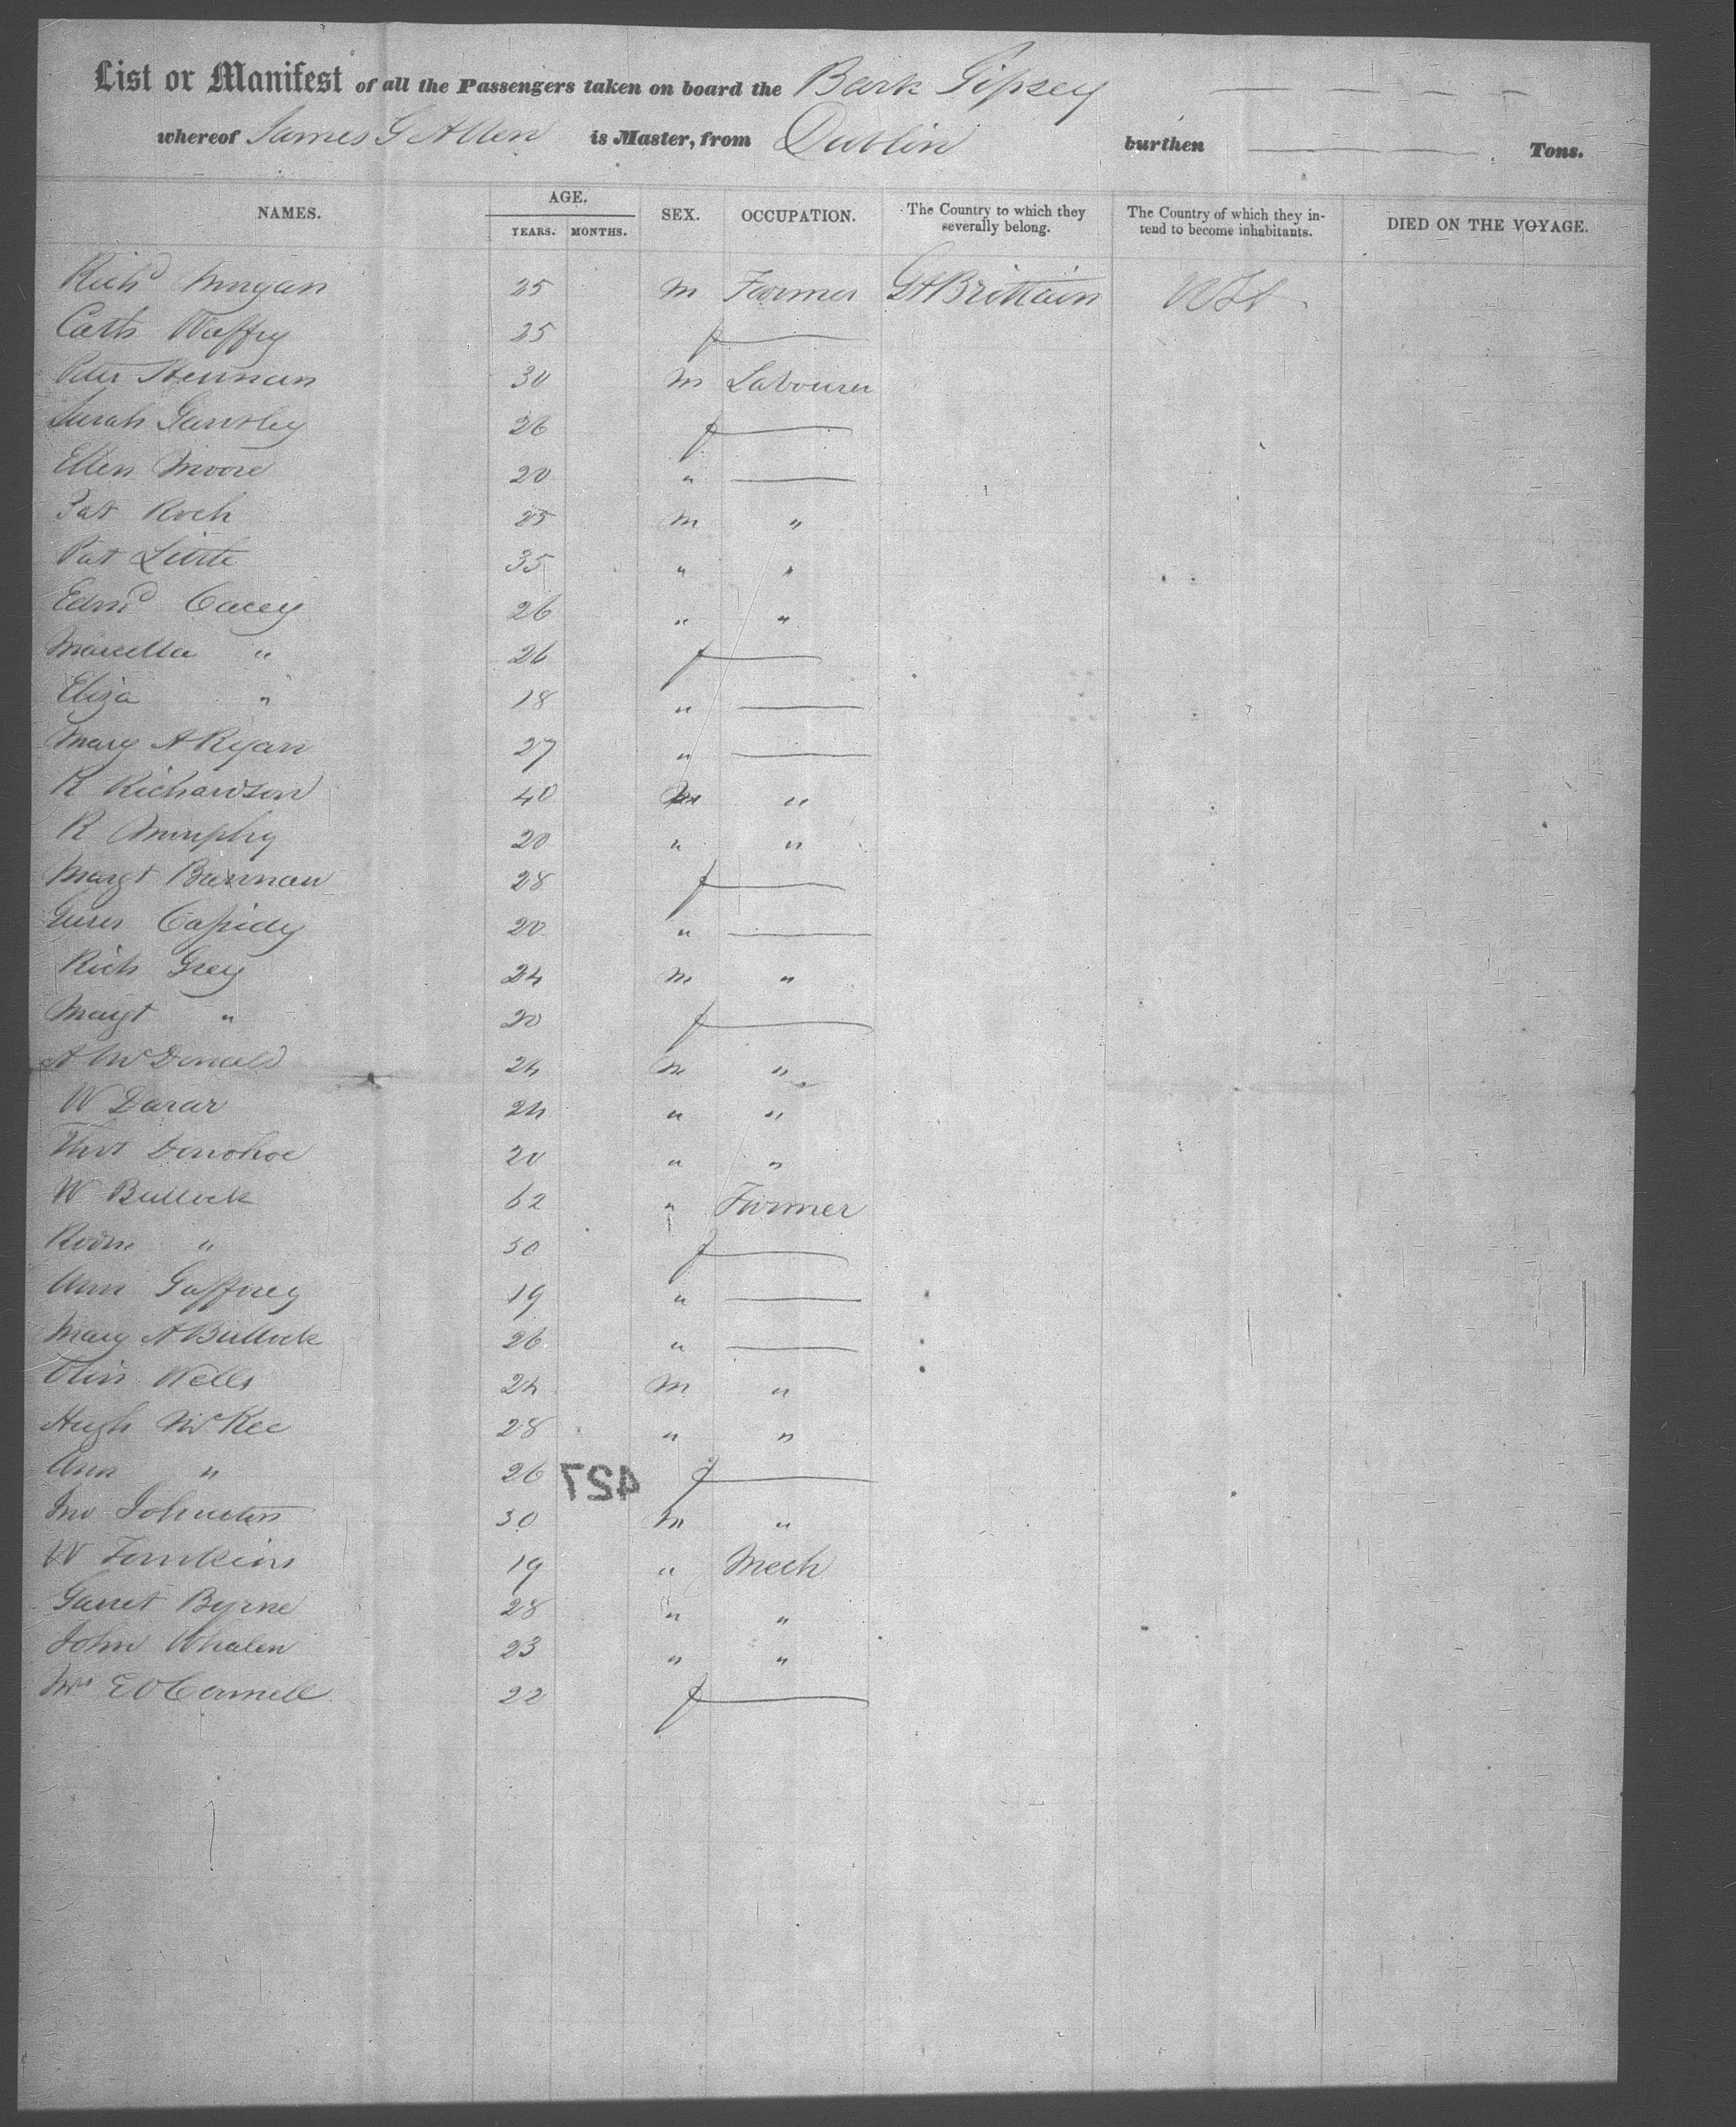 List or Manifest of all the Passengers taken on board the Bark Gipsey
whereof James G Allen is Master, from Dublin burthen Tons.
NAMES. AGE. YEARS. MONTHS. SEX. OCCUPATION. The Country to which they severally belong. The Country of which they intend to become inhabitants. DIED ON THE VOYAGE.
Richd 25 m Farmer Gt Brittain
Cath 25 f
Peter 30 m Labourer
Sarah 26 f
Ellen Moore 20 "
Pat Roch 25 m "
Pat Little 35 " "
Edmd Cacey 26 " "
Marcella " 26 f
Eliza " 18 "
Mary A Ryan 27 "
R Richardson 40 m "
R Murphy 20 " "
Margt Brennan 28 f
Capidy 20 "
Rich Grey 24 m "
Margt " 20 f
A McDonald 24 m "
W Darar 24 " "
Thos Donohoe 20 " "
W Bullock 62 " Farmer
" 50 f
Ann Gaffney 19 "
Mary A Bullock 26 "
Wells 24 m "
Hugh McKee 28 " "
Ann " 26 f
427
Jno Johnston 30 m "
W Tomkins 19 " Mech
Garret Byrne 28 " "
John Whalen 23 " "
Mrs E O Connell 22 f